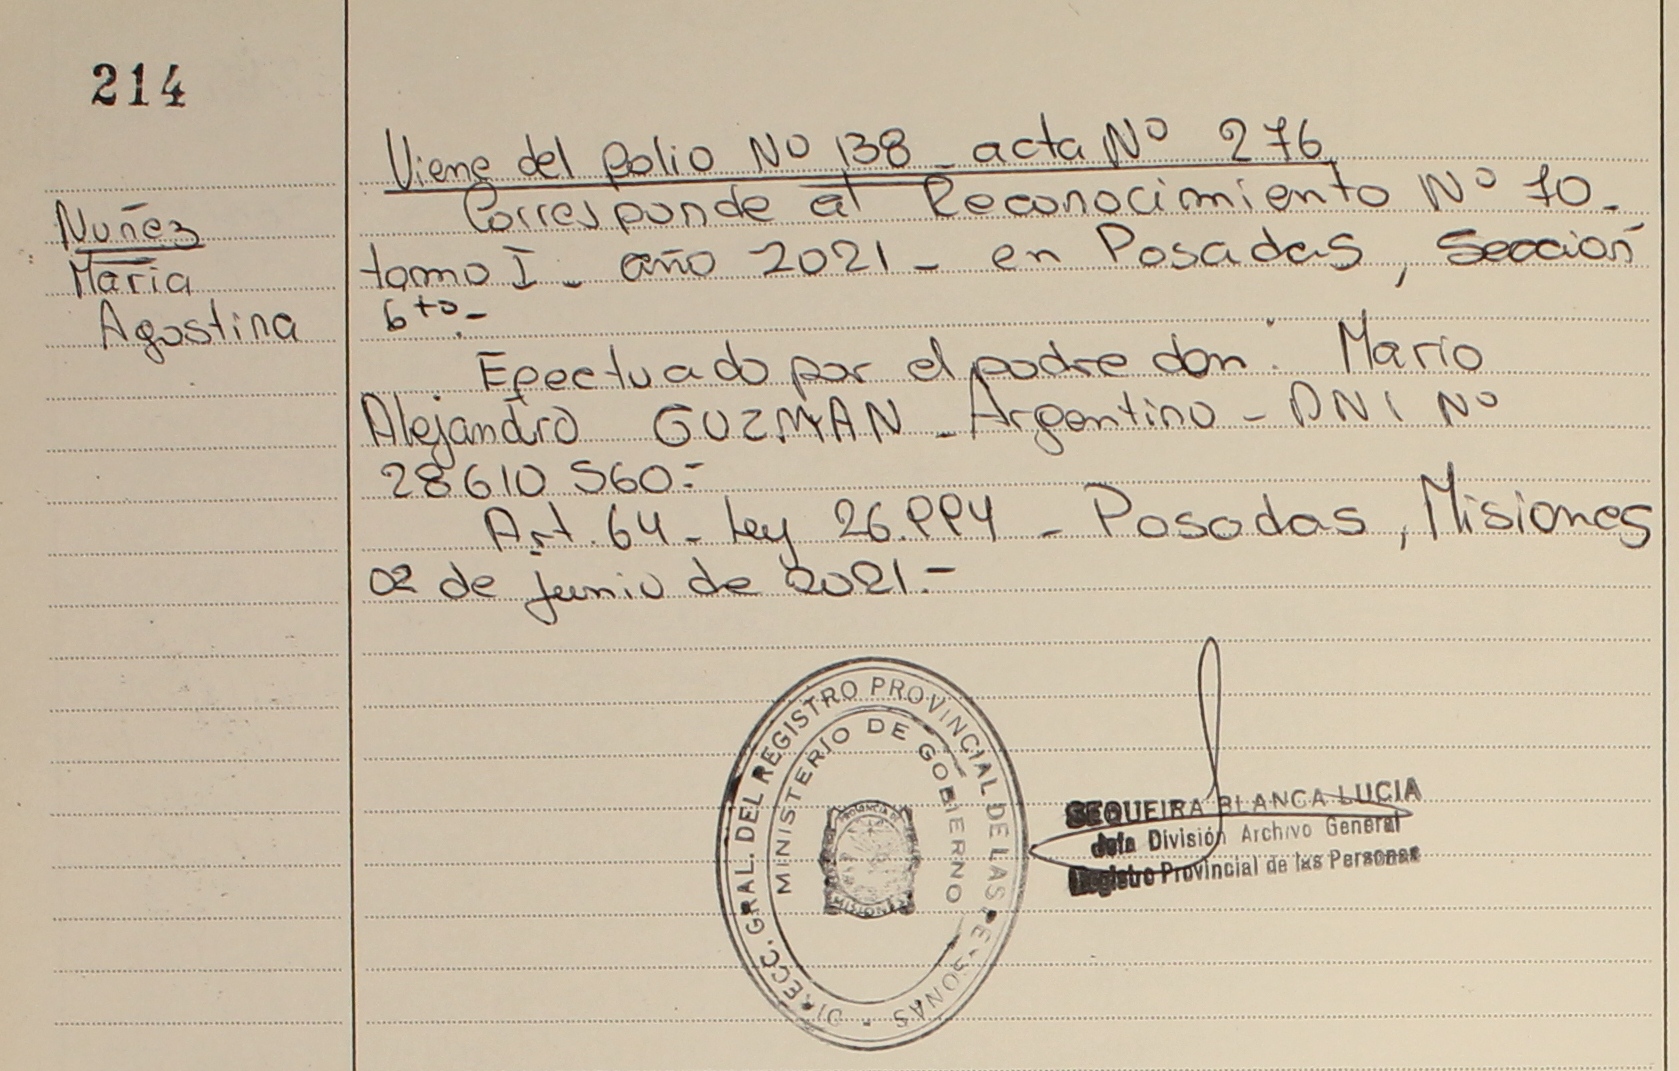 214
Nuñez
Maria
Agostina
Viene del folio Nº 138 - acta Nº 276
Corresponde al Reconocimiento Nº 10 -
tomo I - año 2021 - en Posadas, Sección
6to.-
Efectuado por el padre don: Mario
Alejandro GUZMAN - Argentino - DNI Nº
28610560.-
Art. 64 - Ley 26.994 - Posadas, Misiones
02 de junio de 2021.-
DIRECC. GRAL. DEL REGISTRO PROVINCIAL DE LAS PERSONAS
MINISTERIO DE GOBIERNO
PROVINCIA DE
MISIONES
SEQUEIRA BLANCA LUCIA
Jefa División Archivo General
Registro Provincial de las Personas